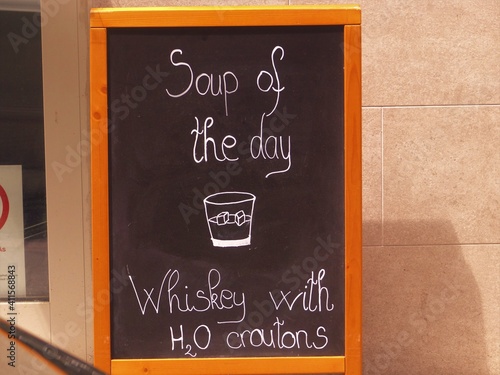 Soup of
the day
Whiskey with
H₂O croutons
Adobe Stock | #411568843